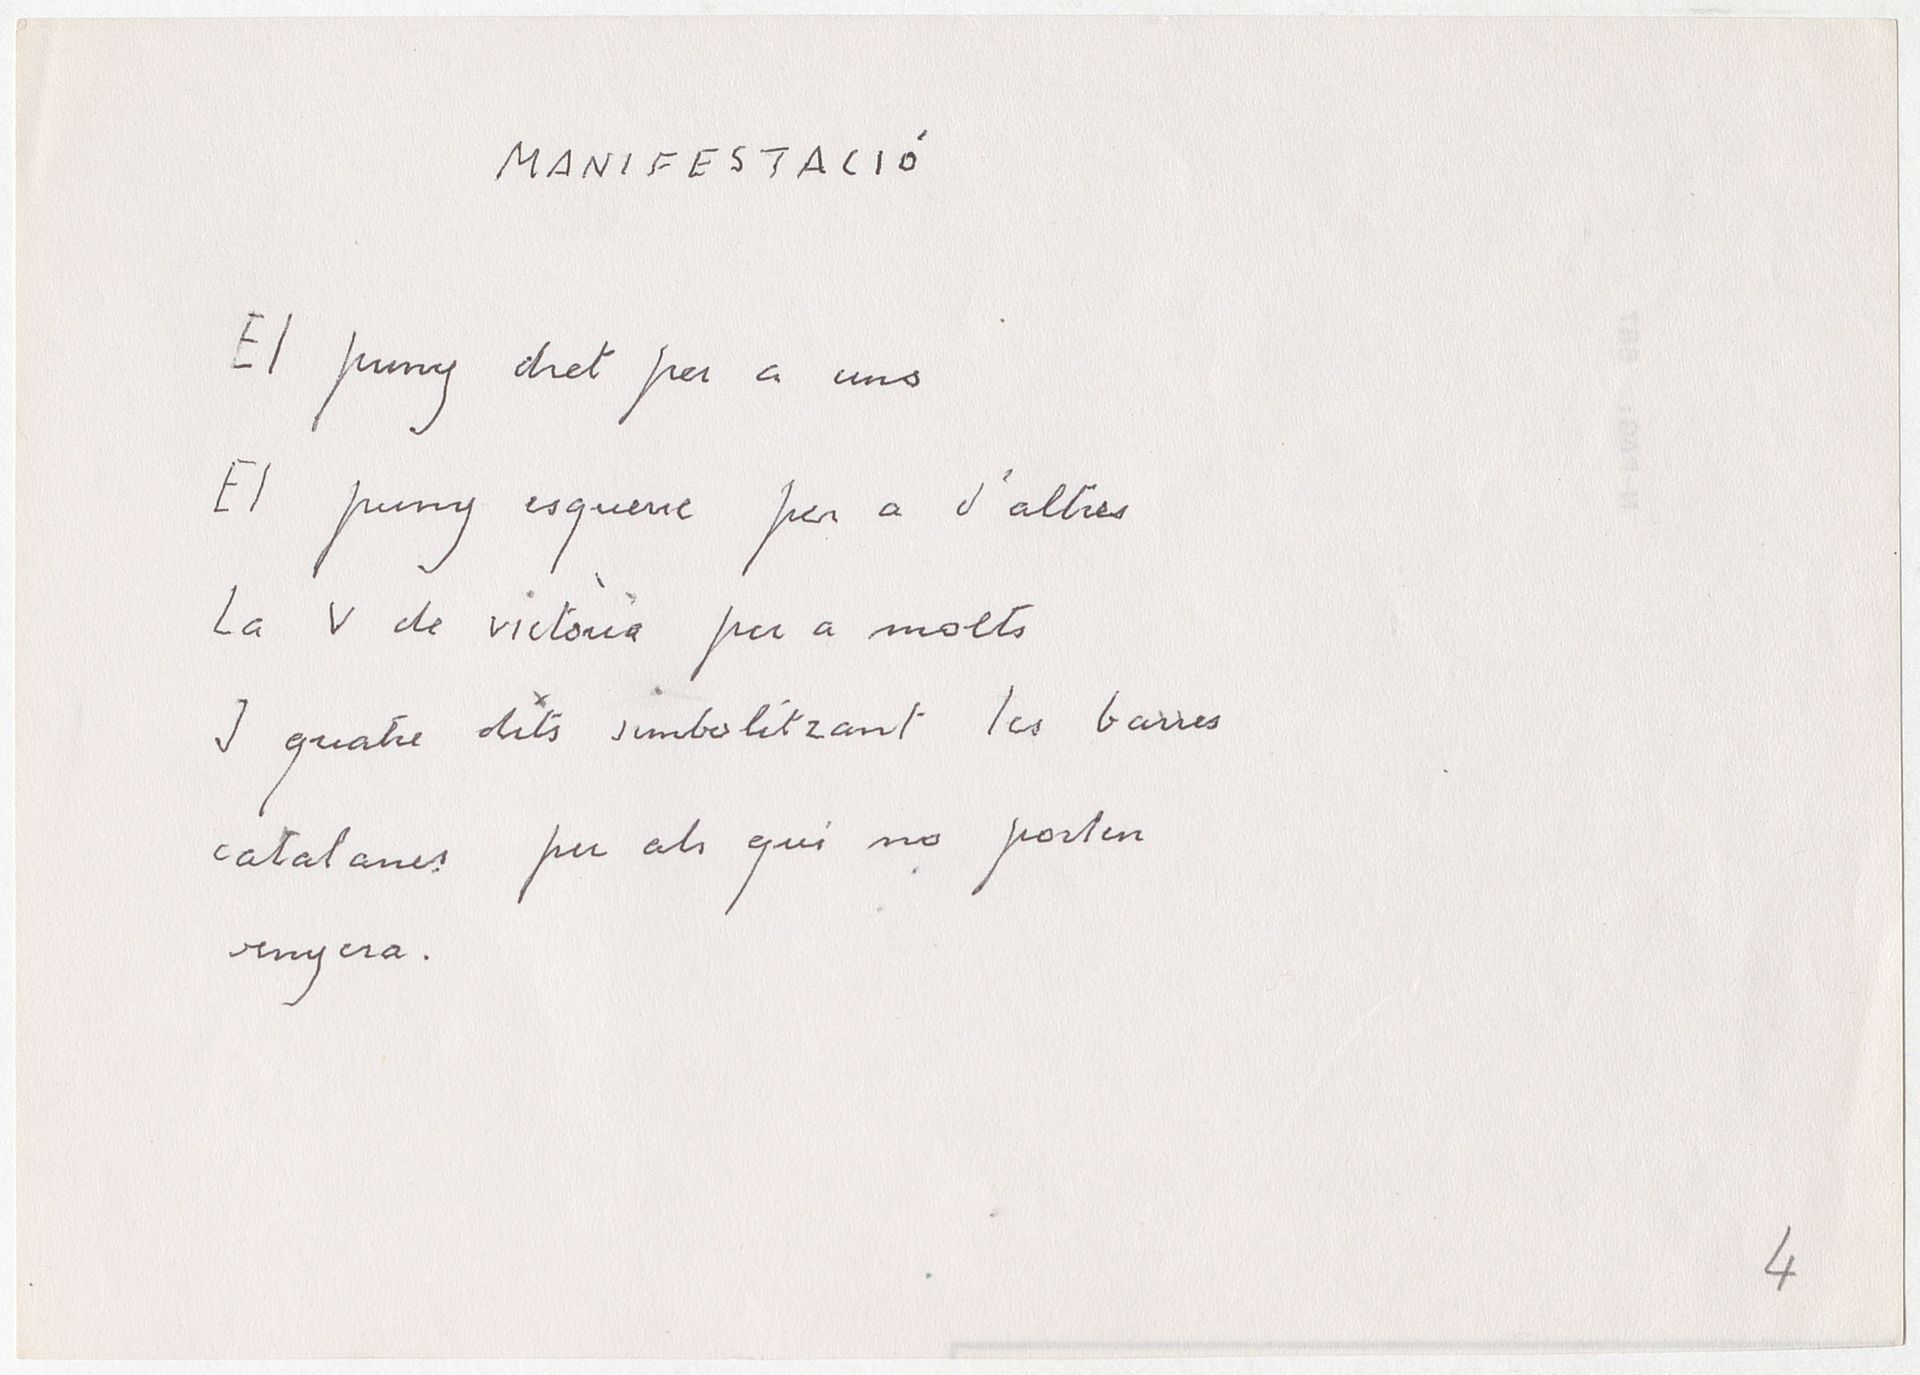 MANIFESTACIÓ
El puny dret per a uns
El puny esquerre per a d'altres
La V de victòria per a molts
I quatre dits simbolitzant les barres
catalanes per als qui no porten
senyera.
4